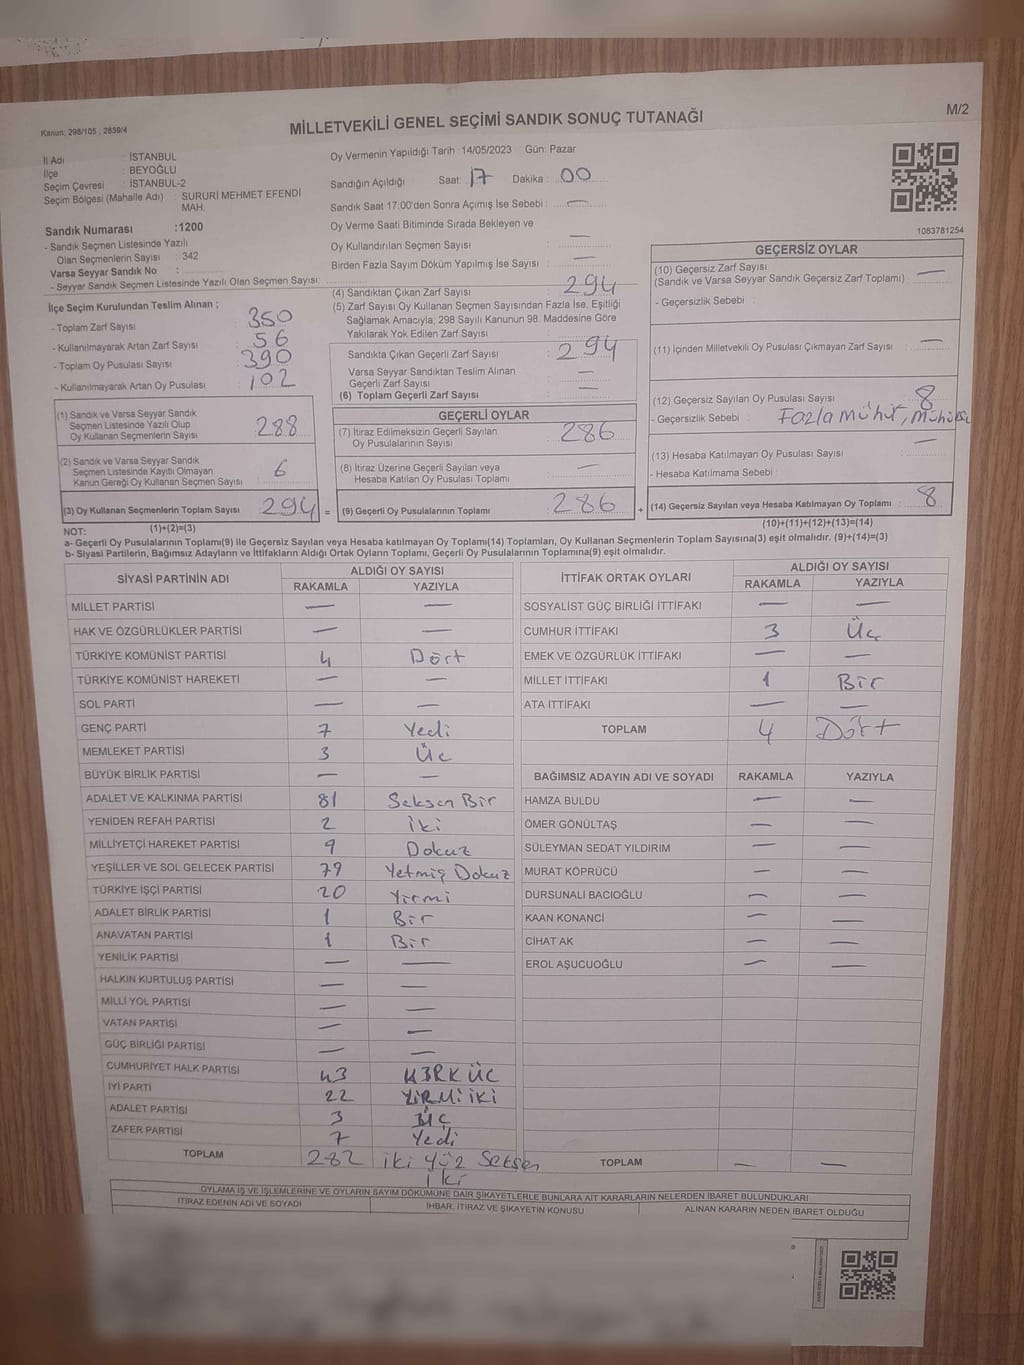 Kanun; 298/105 , 2839/4
MİLLETVEKİLİ GENEL SEÇİMİ SANDIK SONUÇ TUTANAĞI
M/2
İl Adı : İSTANBUL
İlçe : BEYOĞLU
Seçim Çevresi : İSTANBUL-2
Seçim Bölgesi (Mahalle Adı) : SURURİ MEHMET EFENDİ MAH.
Sandık Numarası :1200
- Sandık Seçmen Listesinde Yazılı
Olan Seçmenlerin Sayısı : 342
Varsa Seyyar Sandık No :
- Seyyar Sandık Seçmen Listesinde Yazılı Olan Seçmen Sayısı :
Oy Vermenin Yapıldığı Tarih : 14/05/2023 Gün: Pazar
Sandığın Açıldığı Saat: 17 Dakika : 00
Sandık Saat 17:00'den Sonra Açımış İse Sebebi : —
Oy Verme Saati Bitiminde Sırada Bekleyen ve
Oy Kullandırılan Seçmen Sayısı : —
Birden Fazla Sayım Döküm Yapılmış İse Sayısı : —
1083781254
İlçe Seçim Kurulundan Teslim Alınan ;
- Toplam Zarf Sayısı : 350
- Kullanılmayarak Artan Zarf Sayısı : 56
- Toplam Oy Pusulası Sayısı : 390
- Kullanılmayarak Artan Oy Pusulası : 102
(1) Sandık ve Varsa Seyyar Sandık
Seçmen Listesinde Yazılı Olup
Oy Kullanan Seçmenlerin Sayısı : 288
(2) Sandık ve Varsa Seyyar Sandık
Seçmen Listesinde Kayıtlı Olmayan
Kanun Gereği Oy Kullanan Seçmen Sayısı : 6
(3) Oy Kullanan Seçmenlerin Toplam Sayısı : 294 =
(1)+(2)=(3)
(4) Sandıktan Çıkan Zarf Sayısı : 294
(5) Zarf Sayısı Oy Kullanan Seçmen Sayısından Fazla İse, Eşitliği
Sağlamak Amacıyla; 298 Sayılı Kanunun 98. Maddesine Göre
Yakılarak Yok Edilen Zarf Sayısı :
Sandıkta Çıkan Geçerli Zarf Sayısı : 294
Varsa Seyyar Sandıktan Teslim Alınan
Geçerli Zarf Sayısı : —
(6) Toplam Geçerli Zarf Sayısı : —
GEÇERLİ OYLAR
(7) İtiraz Edilmeksizin Geçerli Sayılan
Oy Pusulalarının Sayısı : 286
(8) İtiraz Üzerine Geçerli Sayılan veya
Hesaba Katılan Oy Pusulası Toplamı : —
(9) Geçerli Oy Pusulalarının Toplamı : 286 +
GEÇERSİZ OYLAR
(10) Geçersiz Zarf Sayısı
(Sandık ve Varsa Seyyar Sandık Geçersiz Zarf Toplamı) : —
- Geçersizlik Sebebi :
(11) İçinden Milletvekili Oy Pusulası Çıkmayan Zarf Sayısı : —
(12) Geçersiz Sayılan Oy Pusulası Sayısı : 8
- Geçersizlik Sebebi : Fazla mühür,
(13) Hesaba Katılmayan Oy Pusulası Sayısı : —
- Hesaba Katılmama Sebebi :
(14) Geçersiz Sayılan veya Hesaba Katılmayan Oy Toplamı : 8
(10)+(11)+(12)+(13)=(14)
NOT:
a- Geçerli Oy Pusulalarının Toplamı(9) ile Geçersiz Sayılan veya Hesaba katılmayan Oy Toplamı(14) Toplamları, Oy Kullanan Seçmenlerin Toplam Sayısına(3) eşit olmalıdır. (9)+(14)=(3)
b- Siyasi Partilerin, Bağımsız Adayların ve İttifakların Aldığı Ortak Oyların Toplamı, Geçerli Oy Pusulalarının Toplamına(9) eşit olmalıdır.
SİYASİ PARTİNİN ADI ALDIĞI OY SAYISI
RAKAMLA YAZIYLA
MİLLET PARTİSİ — —
HAK VE ÖZGÜRLÜKLER PARTİSİ — —
TÜRKİYE KOMÜNİST PARTİSİ 4 Dört
TÜRKİYE KOMÜNİST HAREKETİ — —
SOL PARTİ — —
GENÇ PARTİ 7 Yedi
MEMLEKET PARTİSİ 3 Üç
BÜYÜK BİRLİK PARTİSİ — —
ADALET VE KALKINMA PARTİSİ 81 Seksen Bir
YENİDEN REFAH PARTİSİ 2 iki
MİLLİYETÇİ HAREKET PARTİSİ 9 Dokuz
YEŞİLLER VE SOL GELECEK PARTİSİ 79 Yetmiş Dokuz
TÜRKİYE İŞÇİ PARTİSİ 20 Yirmi
ADALET BİRLİK PARTİSİ 1 Bir
ANAVATAN PARTİSİ 1 Bir
YENİLİK PARTİSİ — —
HALKIN KURTULUŞ PARTİSİ — —
MİLLİ YOL PARTİSİ — —
VATAN PARTİSİ — —
GÜÇ BİRLİĞİ PARTİSİ — —
CUMHURİYET HALK PARTİSİ 43 KIRK ÜÇ
İYİ PARTİ 22 YİRMİ İKİ
ADALET PARTİSİ 3 üç
ZAFER PARTİSİ 7 Yedi
TOPLAM 282 iki yüz Seksen
iki
İTTİFAK ORTAK OYLARI ALDIĞI OY SAYISI
RAKAMLA YAZIYLA
SOSYALİST GÜÇ BİRLİĞİ İTTİFAKI — —
CUMHUR İTTİFAKI 3 Üç
EMEK VE ÖZGÜRLÜK İTTİFAKI — —
MİLLET İTTİFAKI 1 Bir
ATA İTTİFAKI — —
TOPLAM 4 Dört
BAĞIMSIZ ADAYIN ADI VE SOYADI RAKAMLA YAZIYLA
HAMZA BULDU — —
ÖMER GÖNÜLTAŞ — —
SÜLEYMAN SEDAT YILDIRIM — —
MURAT KÖPRÜCÜ — —
DURSUNALİ BACIOĞLU — —
KAAN KONANCİ — —
CİHAT AK — —
EROL AŞUCUOĞLU — —
TOPLAM — —
OYLAMA İŞ VE İŞLEMLERİNE VE OYLARIN SAYIM DÖKÜMÜNE DAİR ŞİKAYETLERLE BUNLARA AİT KARARLARIN NELERDEN İBARET BULUNDUKLARI
İTİRAZ EDENİN ADI VE SOYADI İHBAR, İTİRAZ VE ŞİKAYETİN KONUSU ALINAN KARARIN NEDEN İBARET OLDUĞU